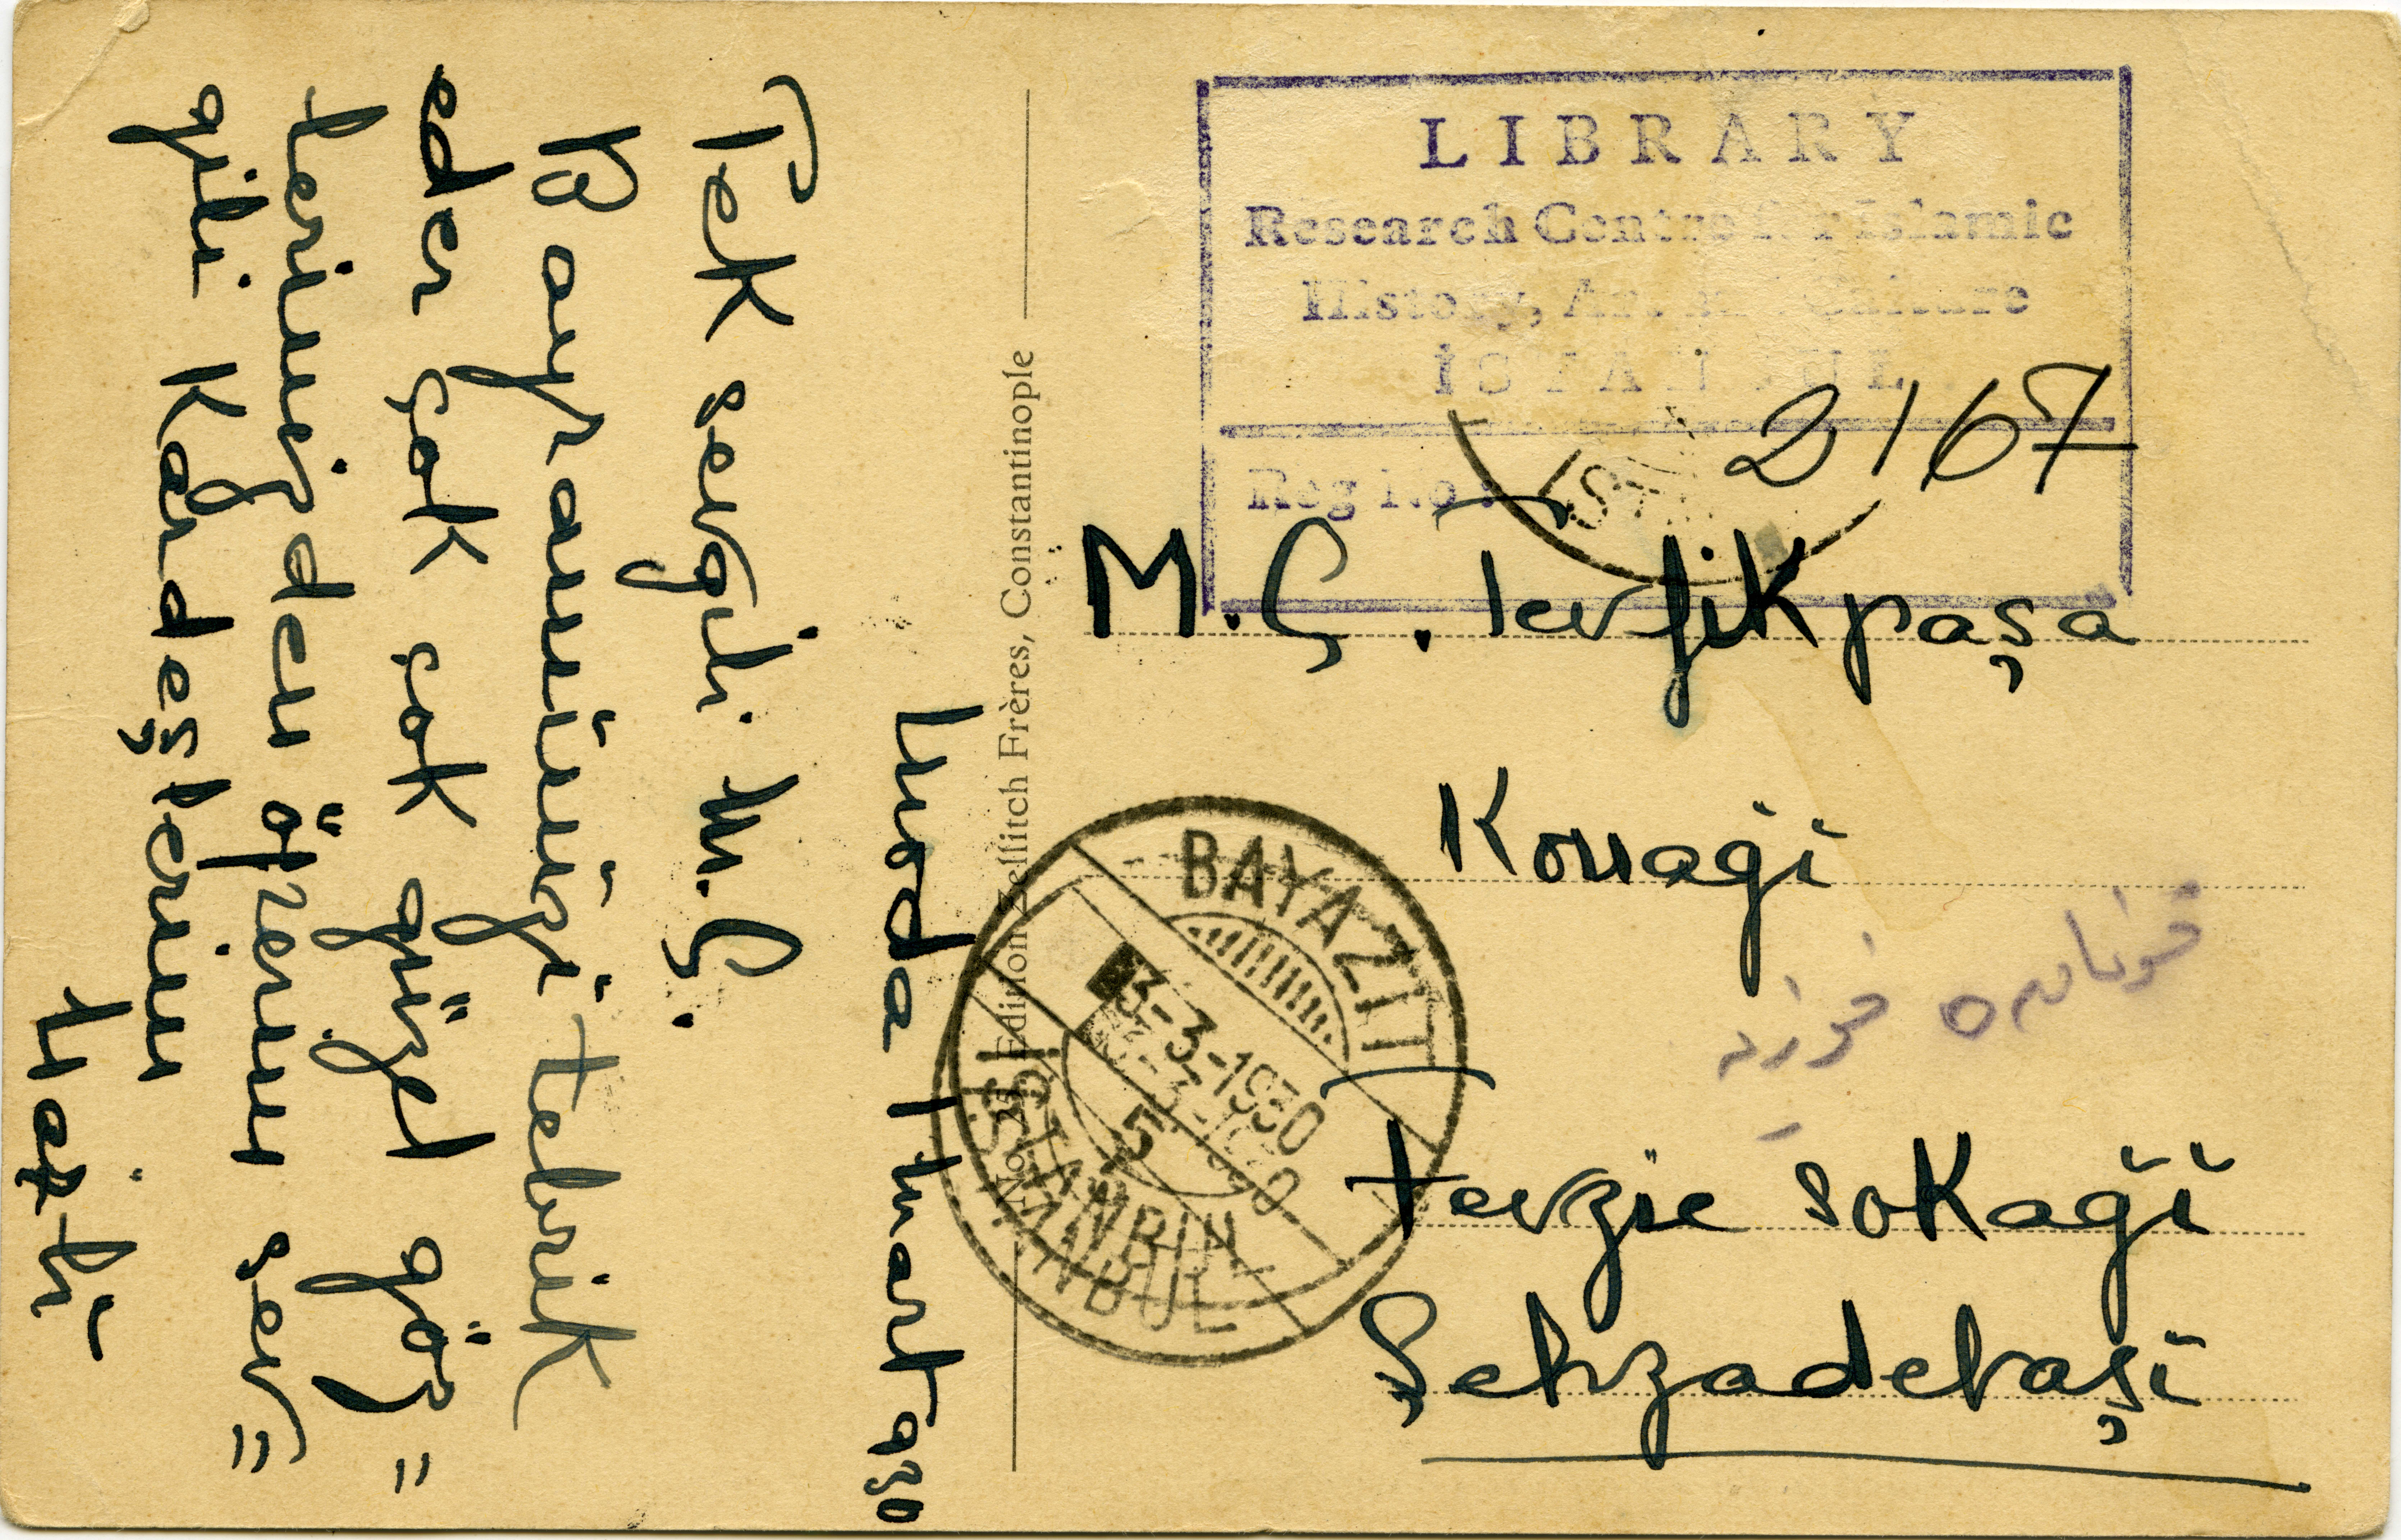 Moda 1 mart 930
Tek sevgili M.Ç.
Bayramünüzi tebrik
eder çok çok güzel göz=
lerinizden öperim sev=
gili Kardeşlerim
No. 25 Edition Zellitch Frères, Constantinople
LIBRARY
Research Centre for Islamic
History, Art and Culture
İSTANBUL
Reg No: 2167
M.Ç. Tevfik paşa
Konagi
Fevzie sokaği
Şehzadebaşi
BAYAZIT
3-3-1930
5
ISTANBUL